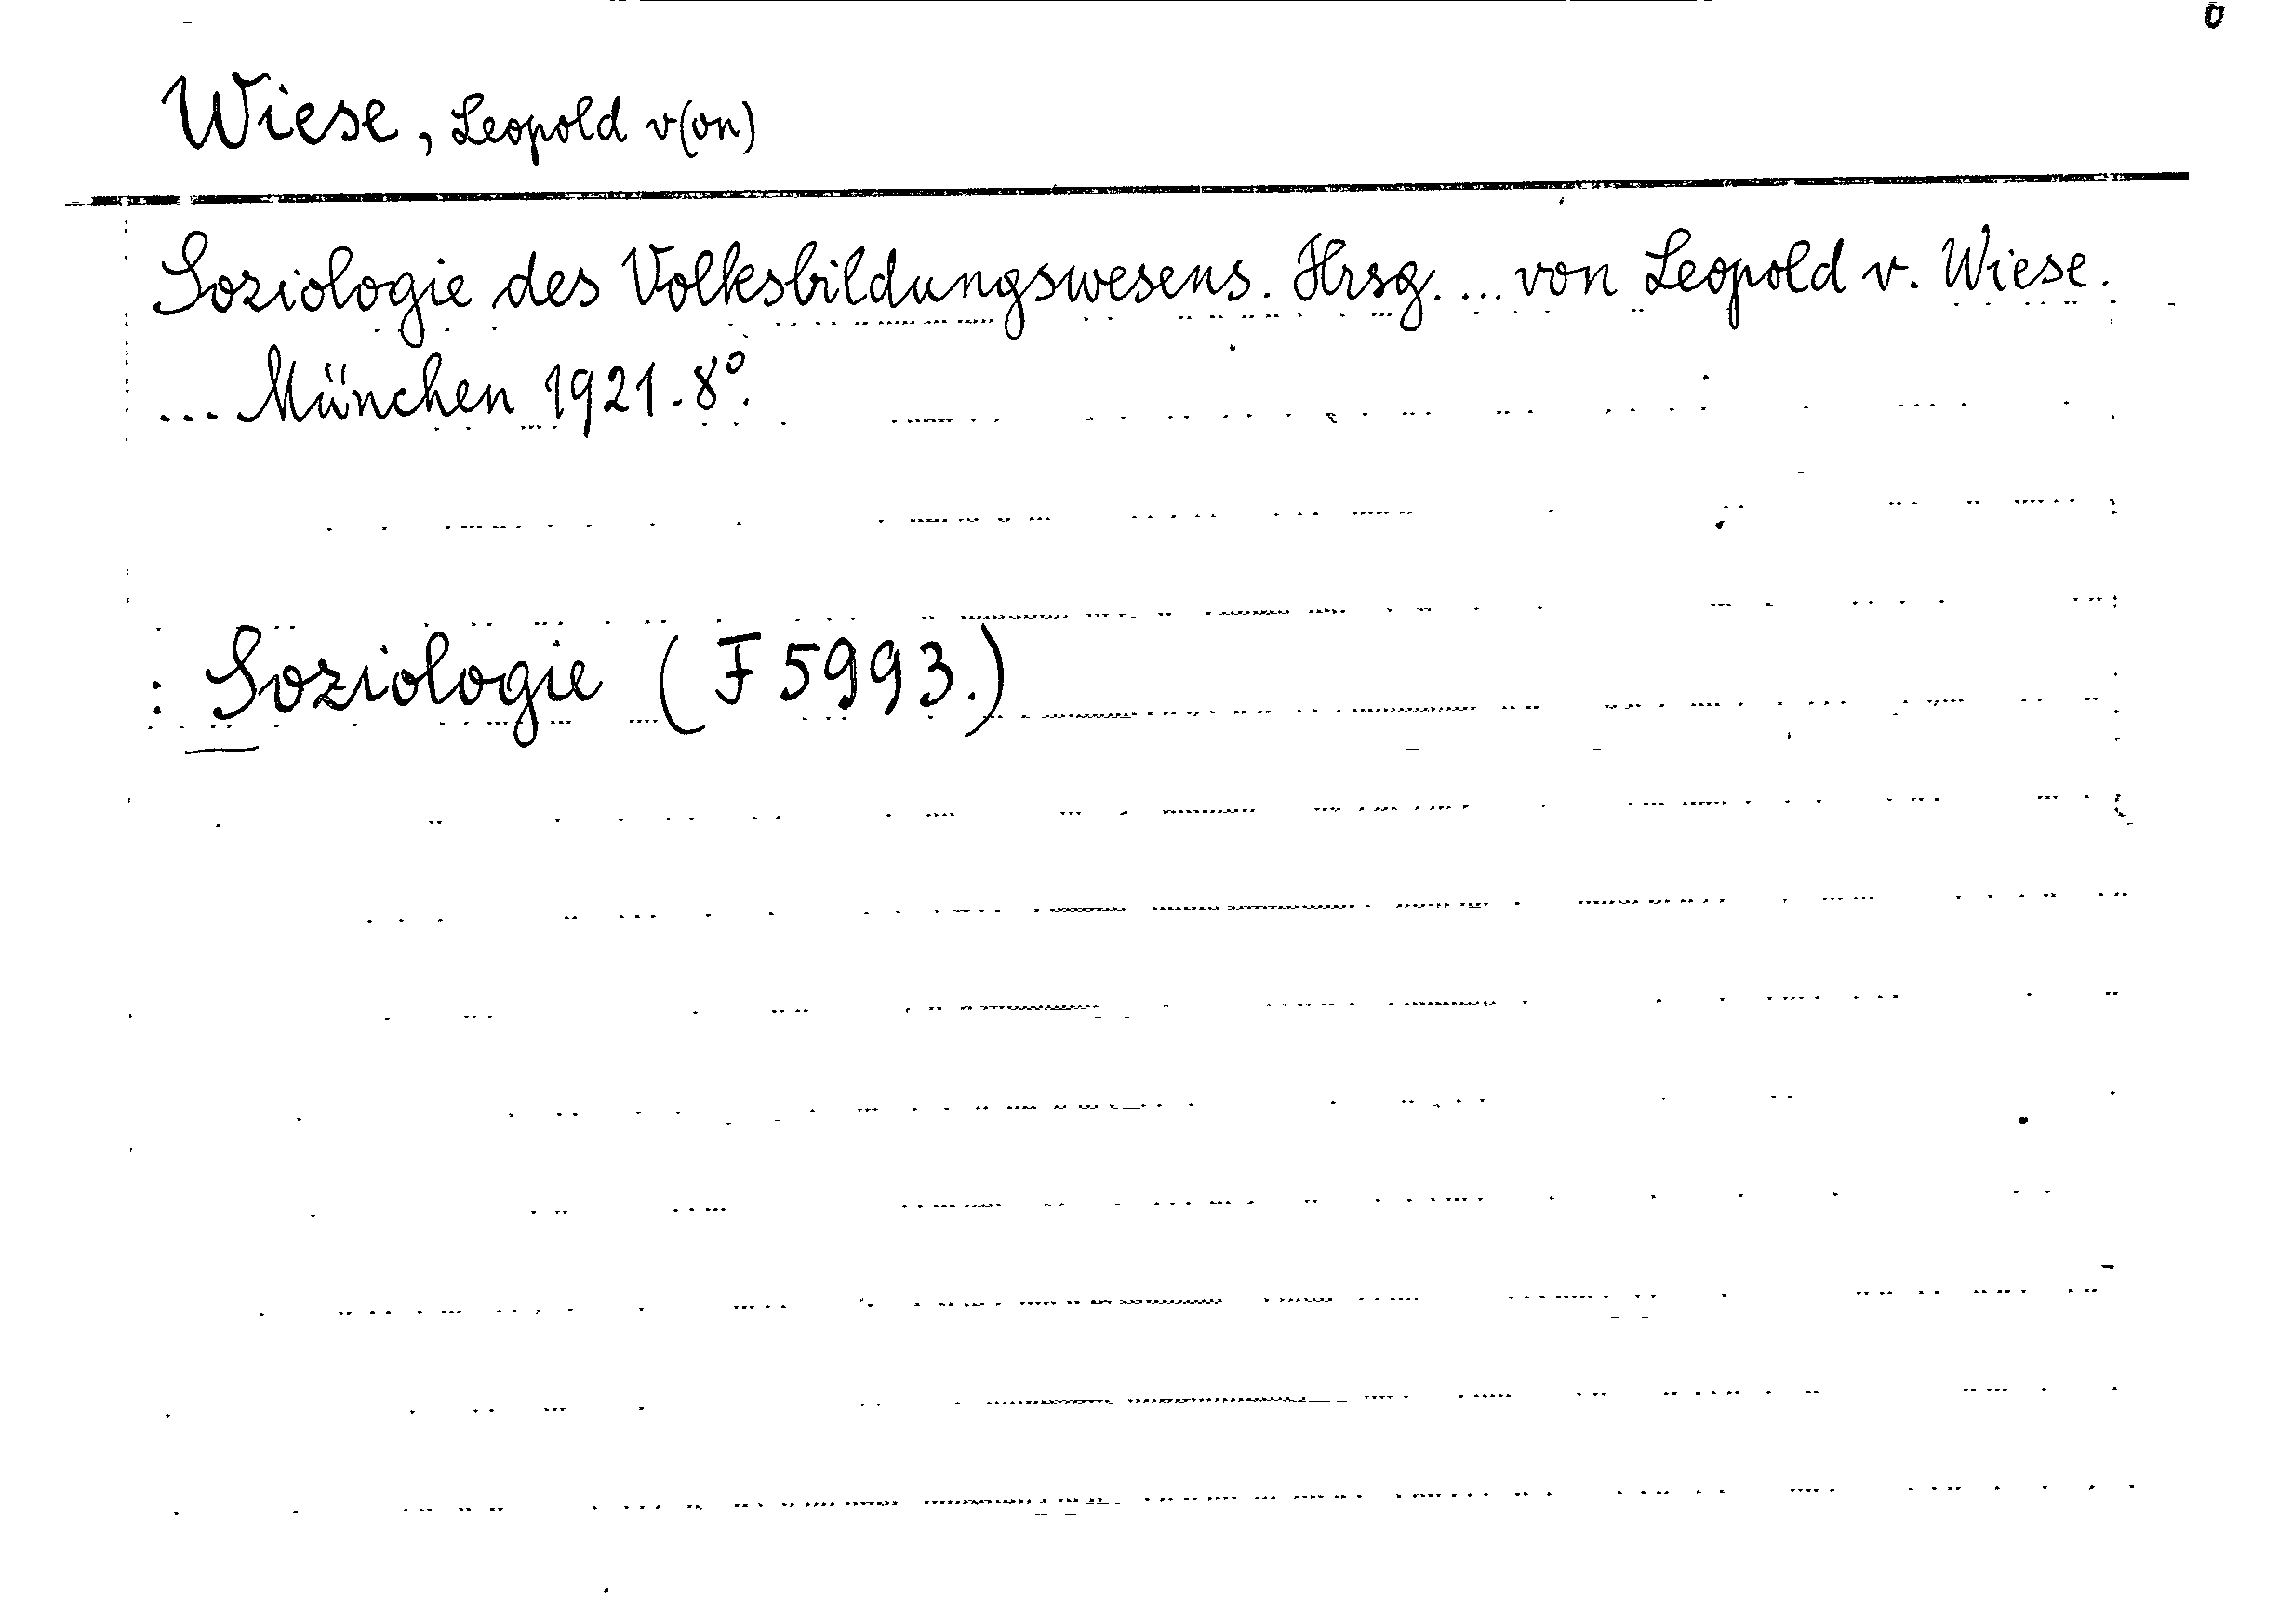 0
Wiese, Leopold v(on)
Soziologie des Volksbildungswesens. Hrsg. ... von Leopold v. Wiese.
... München 1921. 8°.
: Soziologie (F 5993.)